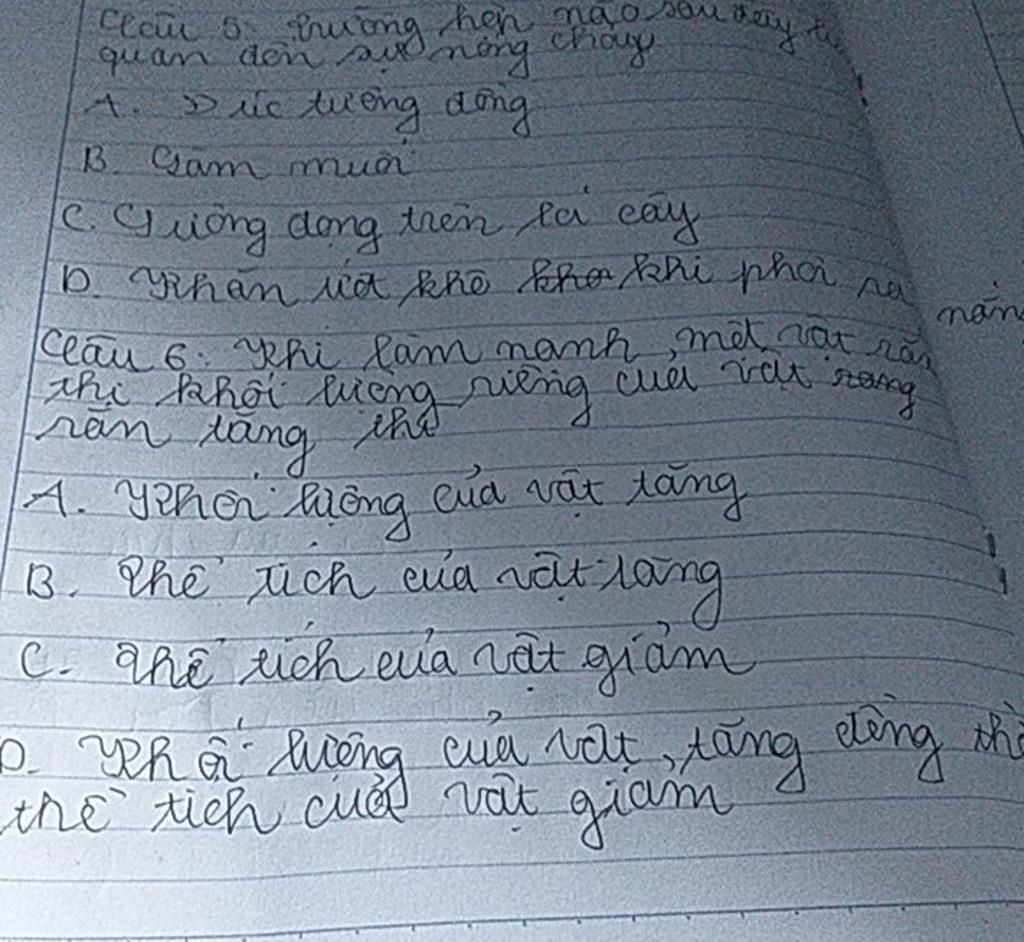 Câu 5: Trường hợp nào sau đây
quan đến sự nóng chảy
A. Đúc tượng đồng
B. Làm muối
C. Sương đọng trên lá cây
D. Khăn ướt khô khi phơi ra nắng
Câu 6: Khi làm nạnh, một vật rắn
thì khối lượng riêng của vật
rắn tăng thì
A. Khối lượng của vật tăng
B. Thể tích của vật tăng
C. Thể tích của vật giảm
D. Khối lượng của vật, tăng đồng
thể tích của vật giảm